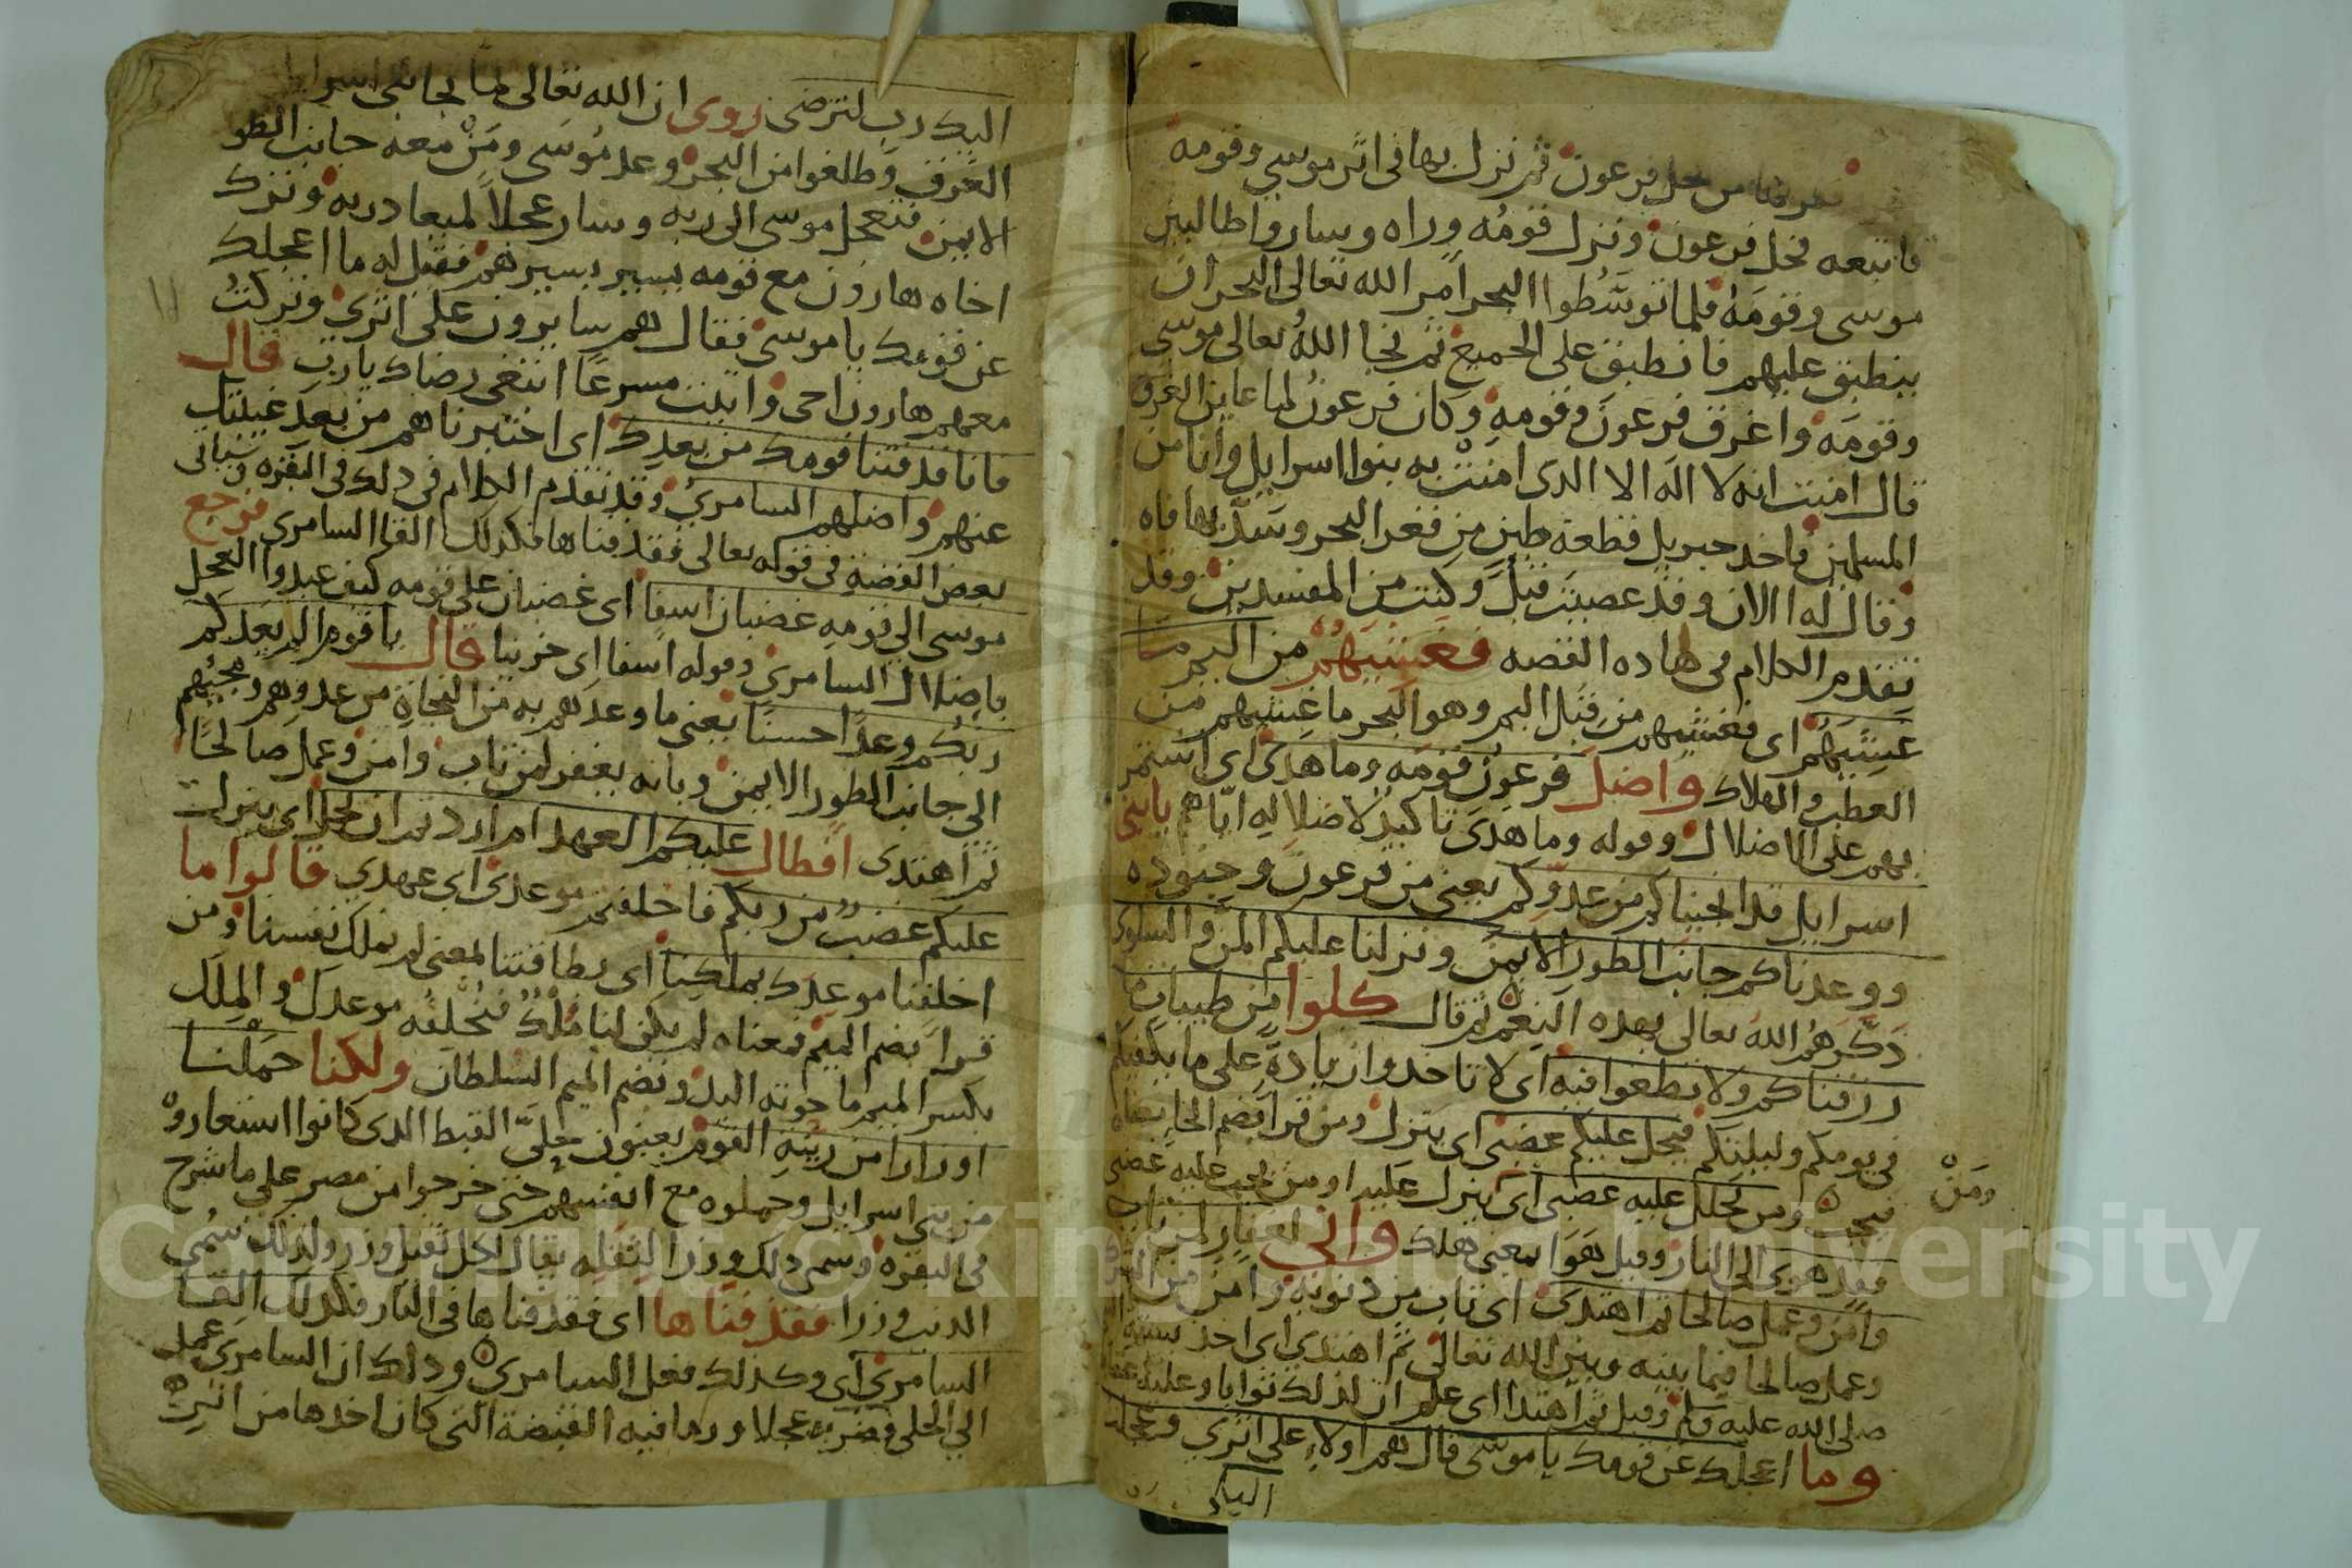 من خل فرعون ثم نزل بها فى اثر موسي وقومه
فاتبعه فحل فرعون ونزل قومُه وراه وساروا طالبين
موسى وقومَهُ فلما توسَّطُوا البحر امر الله تعالى البحر ان
ينطبق عليهم فانطبق على الجميع ثم نجا اللهُ تعالى موسى
وقومَه واغرق فرعونَ وقومِهِ وكان فرعونُ لما عاين الغرق
قال امنت انه لا اله الا الدى امنتْ به بنوا اسرايل وانا من
المسلمين فاخد جبريل قطعة طين من قعر البحر وسَدَّ بها فاه
وقال له االان وقد عصيتَ قبلُ وكنت من المفسدين وقد
تقدم الكلام فى هاده القصه فغشيهُم من اليم ما
غشيَهُم اى فغشيهم من قبل اليم وهو البحر ما غشيهم من
العطب والهلاك واضل فرعون قومَه وما هدى اى استمر
بهم على الاضلال وقوله وما هدى تاكيدٌ لاضلاله اياهم يابنى
اسرايل قد انجيناكم من عدوّكم يعنى من فرعون وجنوده
ووعدناكم جانب الطور الايمن ونزلنا عليكم المن والسلوى
ذكّرهُم اللهُ تعالى بهده النِعَم ثم قال كلوا من طيبات ما
رزقناكم ولا تطغوا فيه اى لا تاخدوا زيادةً على ما يكفيكم
فى يومكم وليلتكم فيحل عليكم غضبى اى ينزل ومن قرا بضم الحا معناه
فيجب ومن يحلل عليه غضبى اى ينزل عليه او من يجب عليه غضبى
ومَنْ
فقد هوى الى النار وقيل هَوَا بمعنى هلك وانى لغفار لمن تاب
وامن وعمل صالحا ثم اهتدى اى تاب من دنوبه وامن من
وعمل صالحا فيما بينه وبين الله تعالى ثم اهتدى اى اخد بسنة
صلى الله عليه وسلم وقيل ثم اهتدا اى علم ان لذلك ثوابا وعليه عقابا
وما اعجلك عن قومك يا موسى قال هم اولاء على اثري وعجلت
اليك
اليك رب لترضى روى ان الله تعالى لما نجا بنى اسرايل
الغرق وطلعوا من البحر وعد مُوسَى ومَنْ معه جانب الطور
الايمن فتعجل موسى الى ربه وسار عجلاً لميعاد ربه وترك
اخاه هارون مع قومه يسير بسيرهم فقيل له ما اعجلك
عن قومك يا موسى فقال هم سايرون على اثري وتركتُ
معهم هارون اخى واتيت مسرعًا ابتغى رضاك يا رب قال
فانا قد فتنا قومك من بعدك اى اختبرناهم من بعد غيبتك
عنهم واضلهم السامري وقد تقدم الكلام فى دلك فى البقره وسياتى
بعض القصة فى قوله تعالى فقدفناها فكدلك القا السامرى فرجع
موسى الى قومِهِ غضبان اسفا اى غضبان على قومه كيف عبدوا العجل
باضلال السامري وقوله اسفا اى حزينا قال ياقوم الم يعدكم
ربكم وعدًا حسنًا يعنى ما وعدهم به من النجاة من عدوهم ومجيهم
الى جانب الطور الايمن وبانه يغفر لمن تاب وامن وعمل صالحًا
ثم اهتدى افطال عليكم العهد ام اردتم ان يحل اى ينزل
عليكم غضبٌ من ربكم فاخلفتم موعدى اى عهدي قالوا ما
اخلفنا موعدك بملكِنا اى بطاقتنا المعنى لم نملك نفسنا ومن
قرا بضم الميم فمعناه لم يكن لنا مُلْكٌ فنُخلفُه موعدك والمِلْك
بكسر الميم ما حوته اليد وبضم الميم السلطان ولكنا حملنا
اوزارا من زينةِ القوم يعنون حِلىّ القبط الدى كانوا استعاروْ
من بنى اسرايل وحملوه مع انفسهم حتى خرجوا من مصر على ما شرح
فى البقره وسمى دلك وزرا لثقله يقال لكل ثقيل وزر ولدلك سُمى
الدنب وزرا فقدفناها اى فقدفناها فى النار فكدلك القا
السامري اى وكدلك فعل السامري ودلك ان السامرى عمل
الى الحلى فضربه عجلا ورما فيه القبضة التى كان اخدها من اثر
Copyright © King Saud University